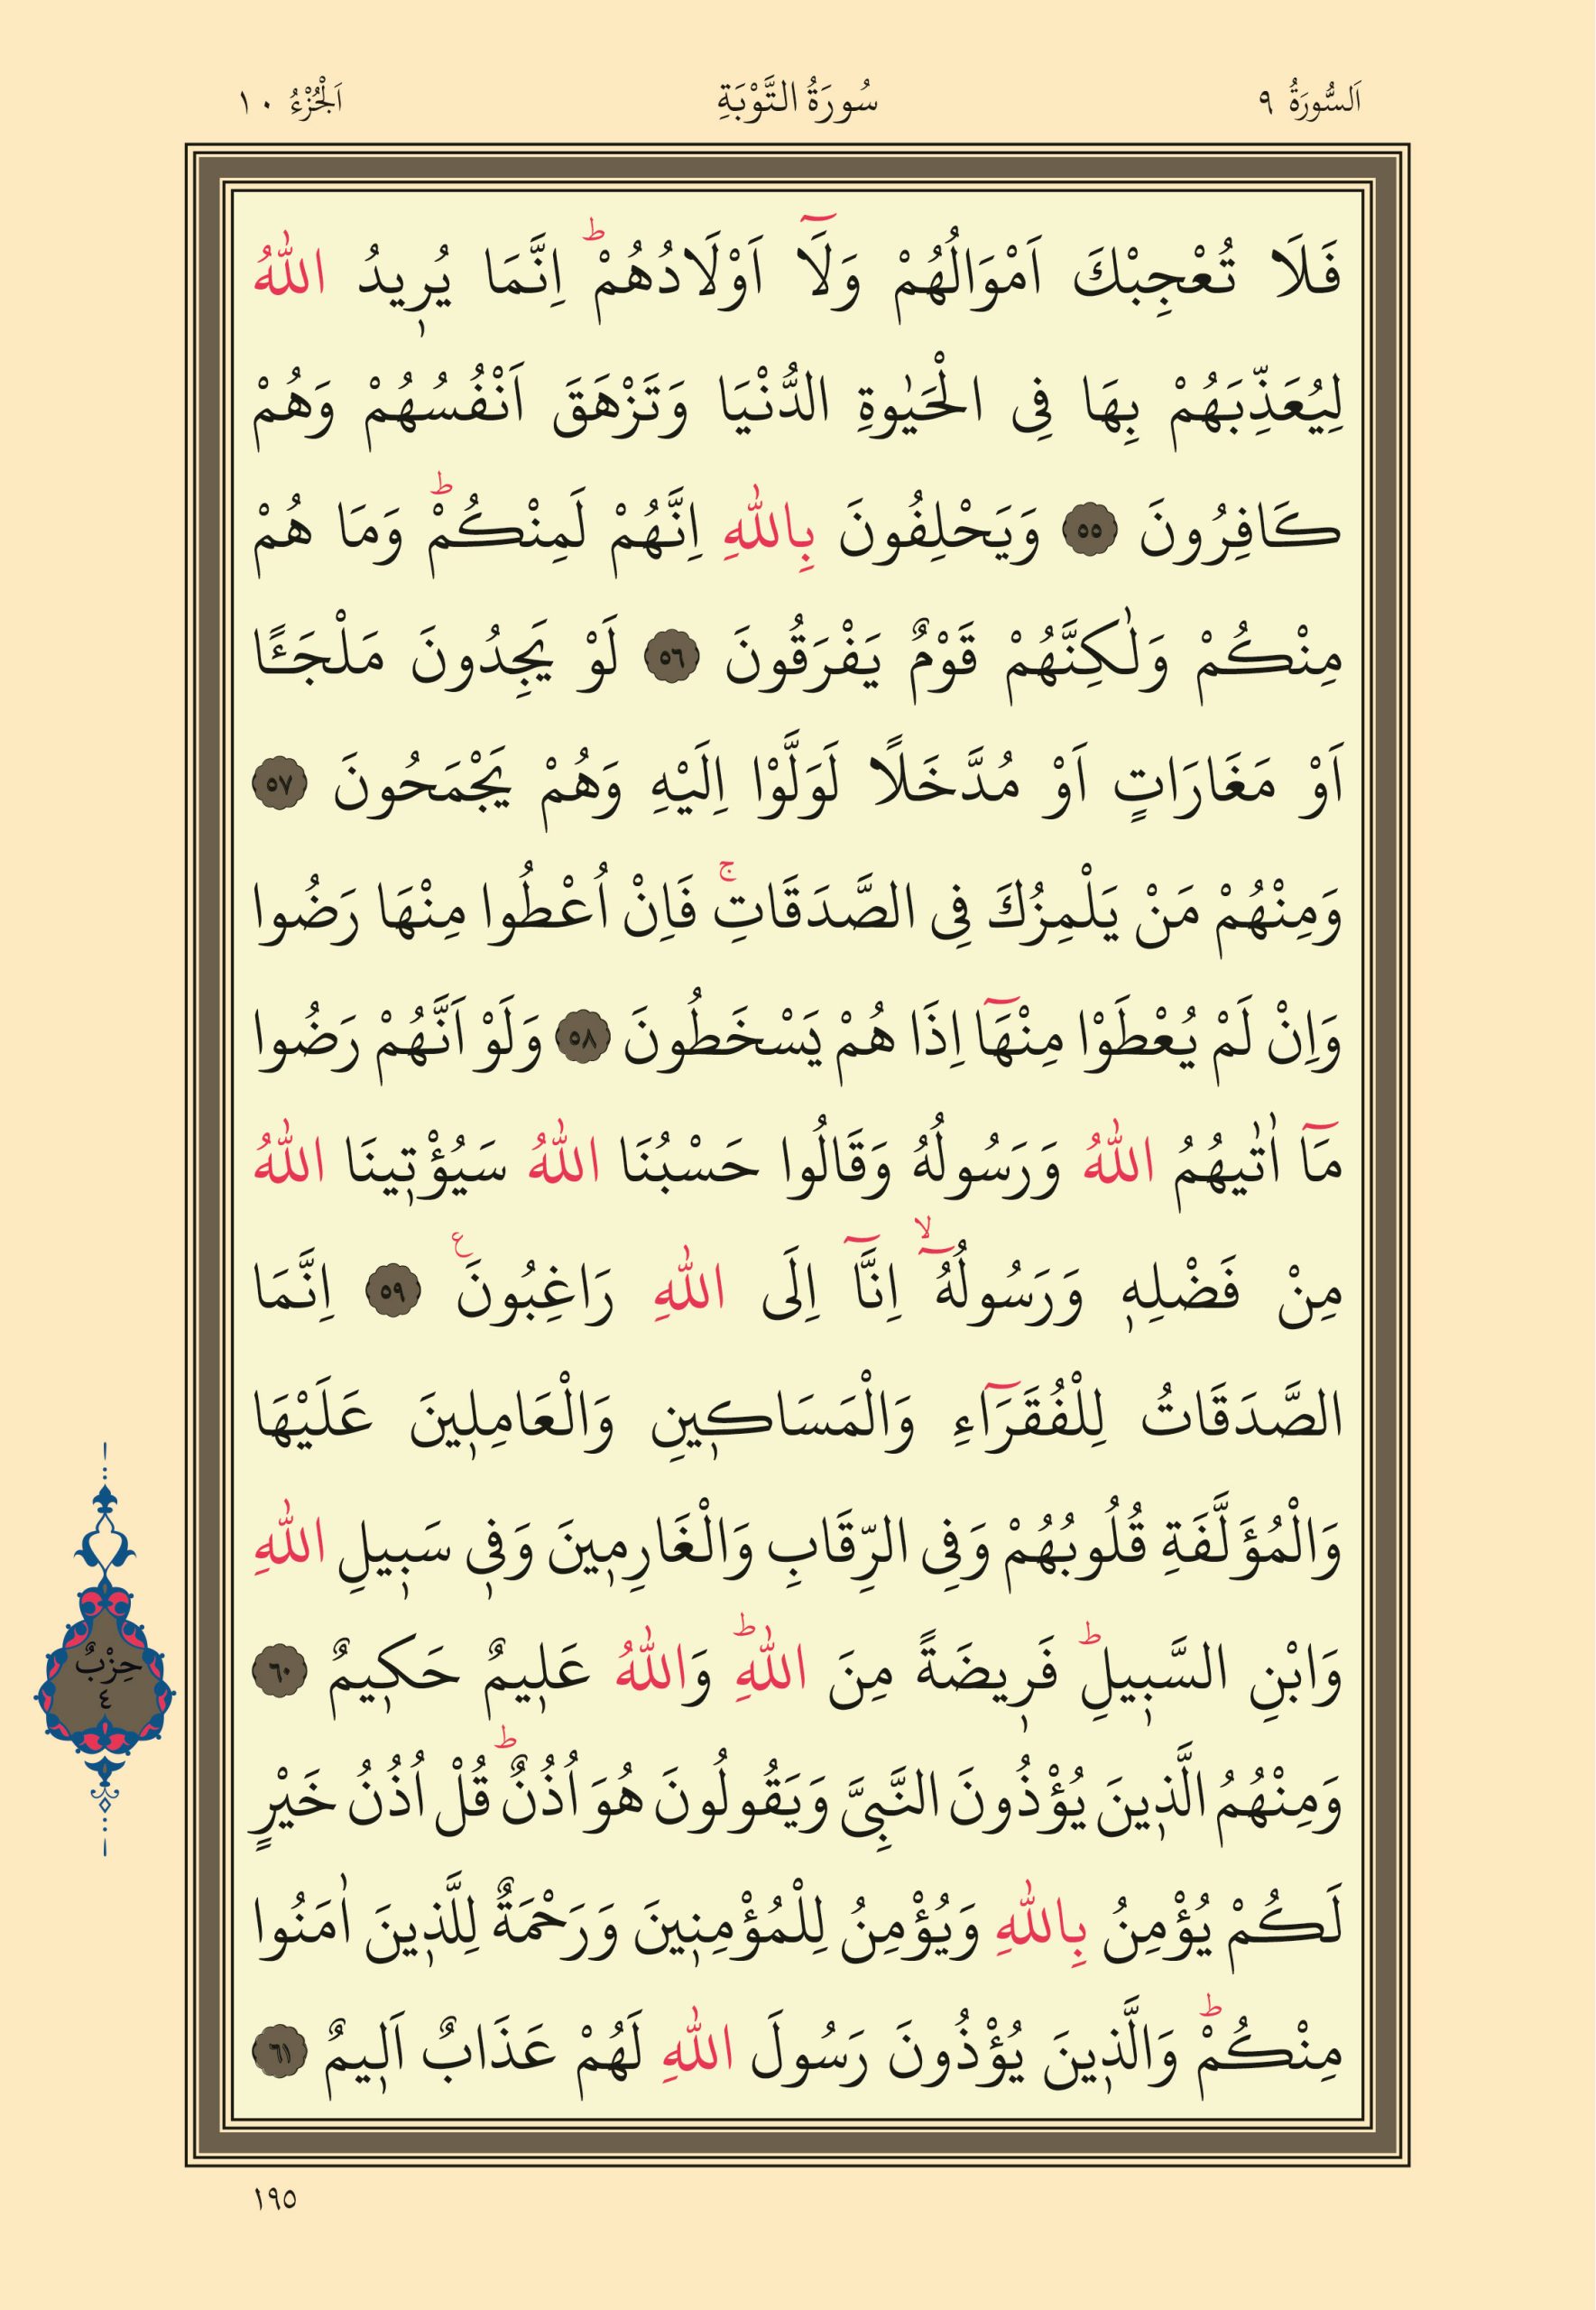 اَلسُّورَةُ ٩
سُورَةُ التَّوْبَةِ
اَلْجُزْءُ ١٠
فَلَا تُعْجِبْكَ اَمْوَالُهُمْ وَلَٓا اَوْلَادُهُمْۜ اِنَّمَا يُر۪يدُ اللّٰهُ
لِيُعَذِّبَهُمْ بِهَا فِى الْحَيٰوةِ الدُّنْيَا وَتَزْهَقَ اَنْفُسُهُمْ وَهُمْ
كَافِرُونَ ﴿٥٥﴾ وَيَحْلِفُونَ بِاللّٰهِ اِنَّهُمْ لَمِنْكُمْۜ وَمَا هُمْ
مِنْكُمْ وَلٰكِنَّهُمْ قَوْمٌ يَفْرَقُونَ ﴿٥٦﴾ لَوْ يَجِدُونَ مَلْجَـًٔا
اَوْ مَغَارَاتٍ اَوْ مُدَّخَلًا لَوَلَّوْا اِلَيْهِ وَهُمْ يَجْمَحُونَ ﴿٥٧﴾
وَمِنْهُمْ مَنْ يَلْمِزُكَ فِى الصَّدَقَاتِۚ فَاِنْ اُعْطُوا مِنْهَا رَضُوا
وَاِنْ لَمْ يُعْطَوْا مِنْهَٓا اِذَا هُمْ يَسْخَطُونَ ﴿٥٨﴾ وَلَوْ اَنَّهُمْ رَضُوا
مَٓا اٰتٰيهُمُ اللّٰهُ وَرَسُولُهُ وَقَالُوا حَسْبُنَا اللّٰهُ سَيُؤْت۪ينَا اللّٰهُ
مِنْ فَضْلِه۪ وَرَسُولُهُٓۙ اِنَّٓا اِلَى اللّٰهِ رَاغِبُونَ۟ ﴿٥٩﴾ اِنَّمَا
الصَّدَقَاتُ لِلْفُقَرَٓاءِ وَالْمَسَاك۪ينِ وَالْعَامِل۪ينَ عَلَيْهَا
وَالْمُؤَلَّفَةِ قُلُوبُهُمْ وَفِى الرِّقَابِ وَالْغَارِم۪ينَ وَف۪ى سَب۪يلِ اللّٰهِ
وَابْنِ السَّب۪يلِۜ فَر۪يضَةً مِنَ اللّٰهِۜ وَاللّٰهُ عَل۪يمٌ حَك۪يمٌ ﴿٦٠﴾
وَمِنْهُمُ الَّذ۪ينَ يُؤْذُونَ النَّبِىَّ وَيَقُولُونَ هُوَ اُذُنٌۜ قُلْ اُذُنُ خَيْرٍ
لَكُمْ يُؤْمِنُ بِاللّٰهِ وَيُؤْمِنُ لِلْمُؤْمِن۪ينَ وَرَحْمَةٌ لِلَّذ۪ينَ اٰمَنُوا
مِنْكُمْۜ وَالَّذ۪ينَ يُؤْذُونَ رَسُولَ اللّٰهِ لَهُمْ عَذَابٌ اَل۪يمٌ ﴿٦١﴾
حِزْبٌ
٤
١٩٥